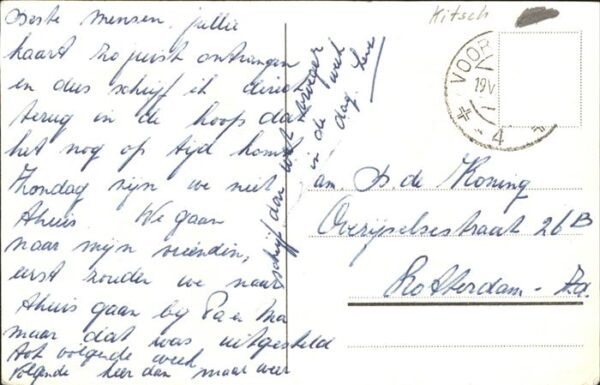 Beste mensen, jullie
kaart zo juist ontvangen
en dus schrijf ik direct
terug in de hoop dat
het nog op tijd komt
Zondag zijn we niet
thuis. We gaan
naar mijn vriendin,
eerst zouden we naar
thuis gaan bij Pa en Ma
maar dat was uitgesteld
tot volgende week
volgende keer dan maar weer
schrijf dan wat vroeger
in de week
dag.
Kitsch
VOOR
19 V
4
am. Ds. de Koning
Overijselsestraat 26B
Rotterdam - Zd.